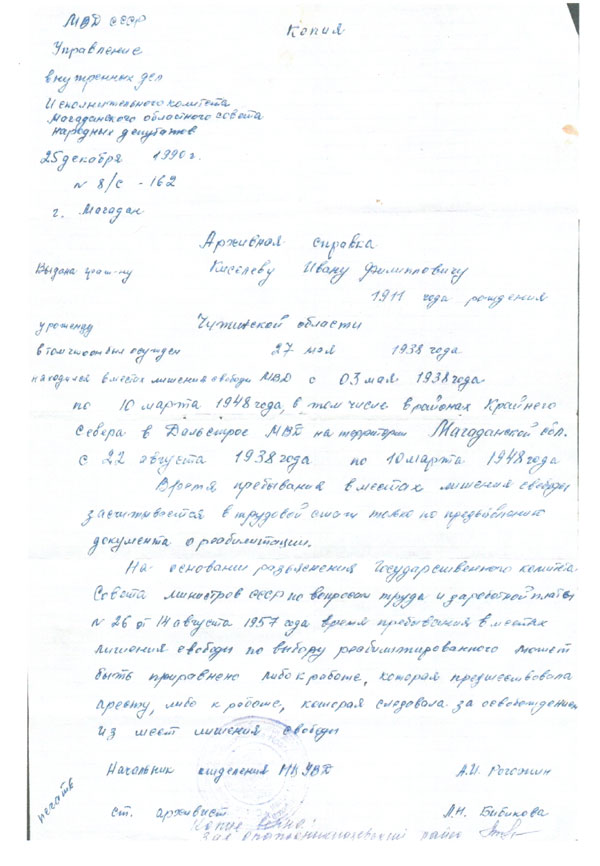 МВД СССР
Копия
Управление
внутренних дел
Исполнительного комитета
Магаданского областного совета
народных депутатов
25 декабря 1990 г.
№ 8/С - 162
г. Магадан
Архивная справка
Выдана граж-ну Киселеву Ивану Филипповичу
1911 года рождения
урожденцу Читинской области
в том что он был осужден 27 мая 1938 года
находился в местах лишения свободы МВД с 03 мая 1938 года
по 10 марта 1948 года, в том числе в районах Крайнего
Севера в Дальстрое МВД на территории Магаданской обл.
с 22 августа 1938 года по 10 марта 1948 года
Время пребывания в местах лишения свободы
засчитывается в трудовой стаж только по предъявлении
документа о реабилитации.
На основании разъяснения Государственного комитета
Совета министров СССР по вопросам труда и заработной платы
№ 26 от 14 августа 1957 года время пребывания в местах
лишения свободы по выбору реабилитированного может
быть приравнено либо к работе, которая предшествовала
аресту, либо к работе, которая следовала за освобождением
из мест лишения свободы
Начальник отделения А.И. Рогожин
печать
ст. архивист Л.Н. Бибикова
Копия верна: